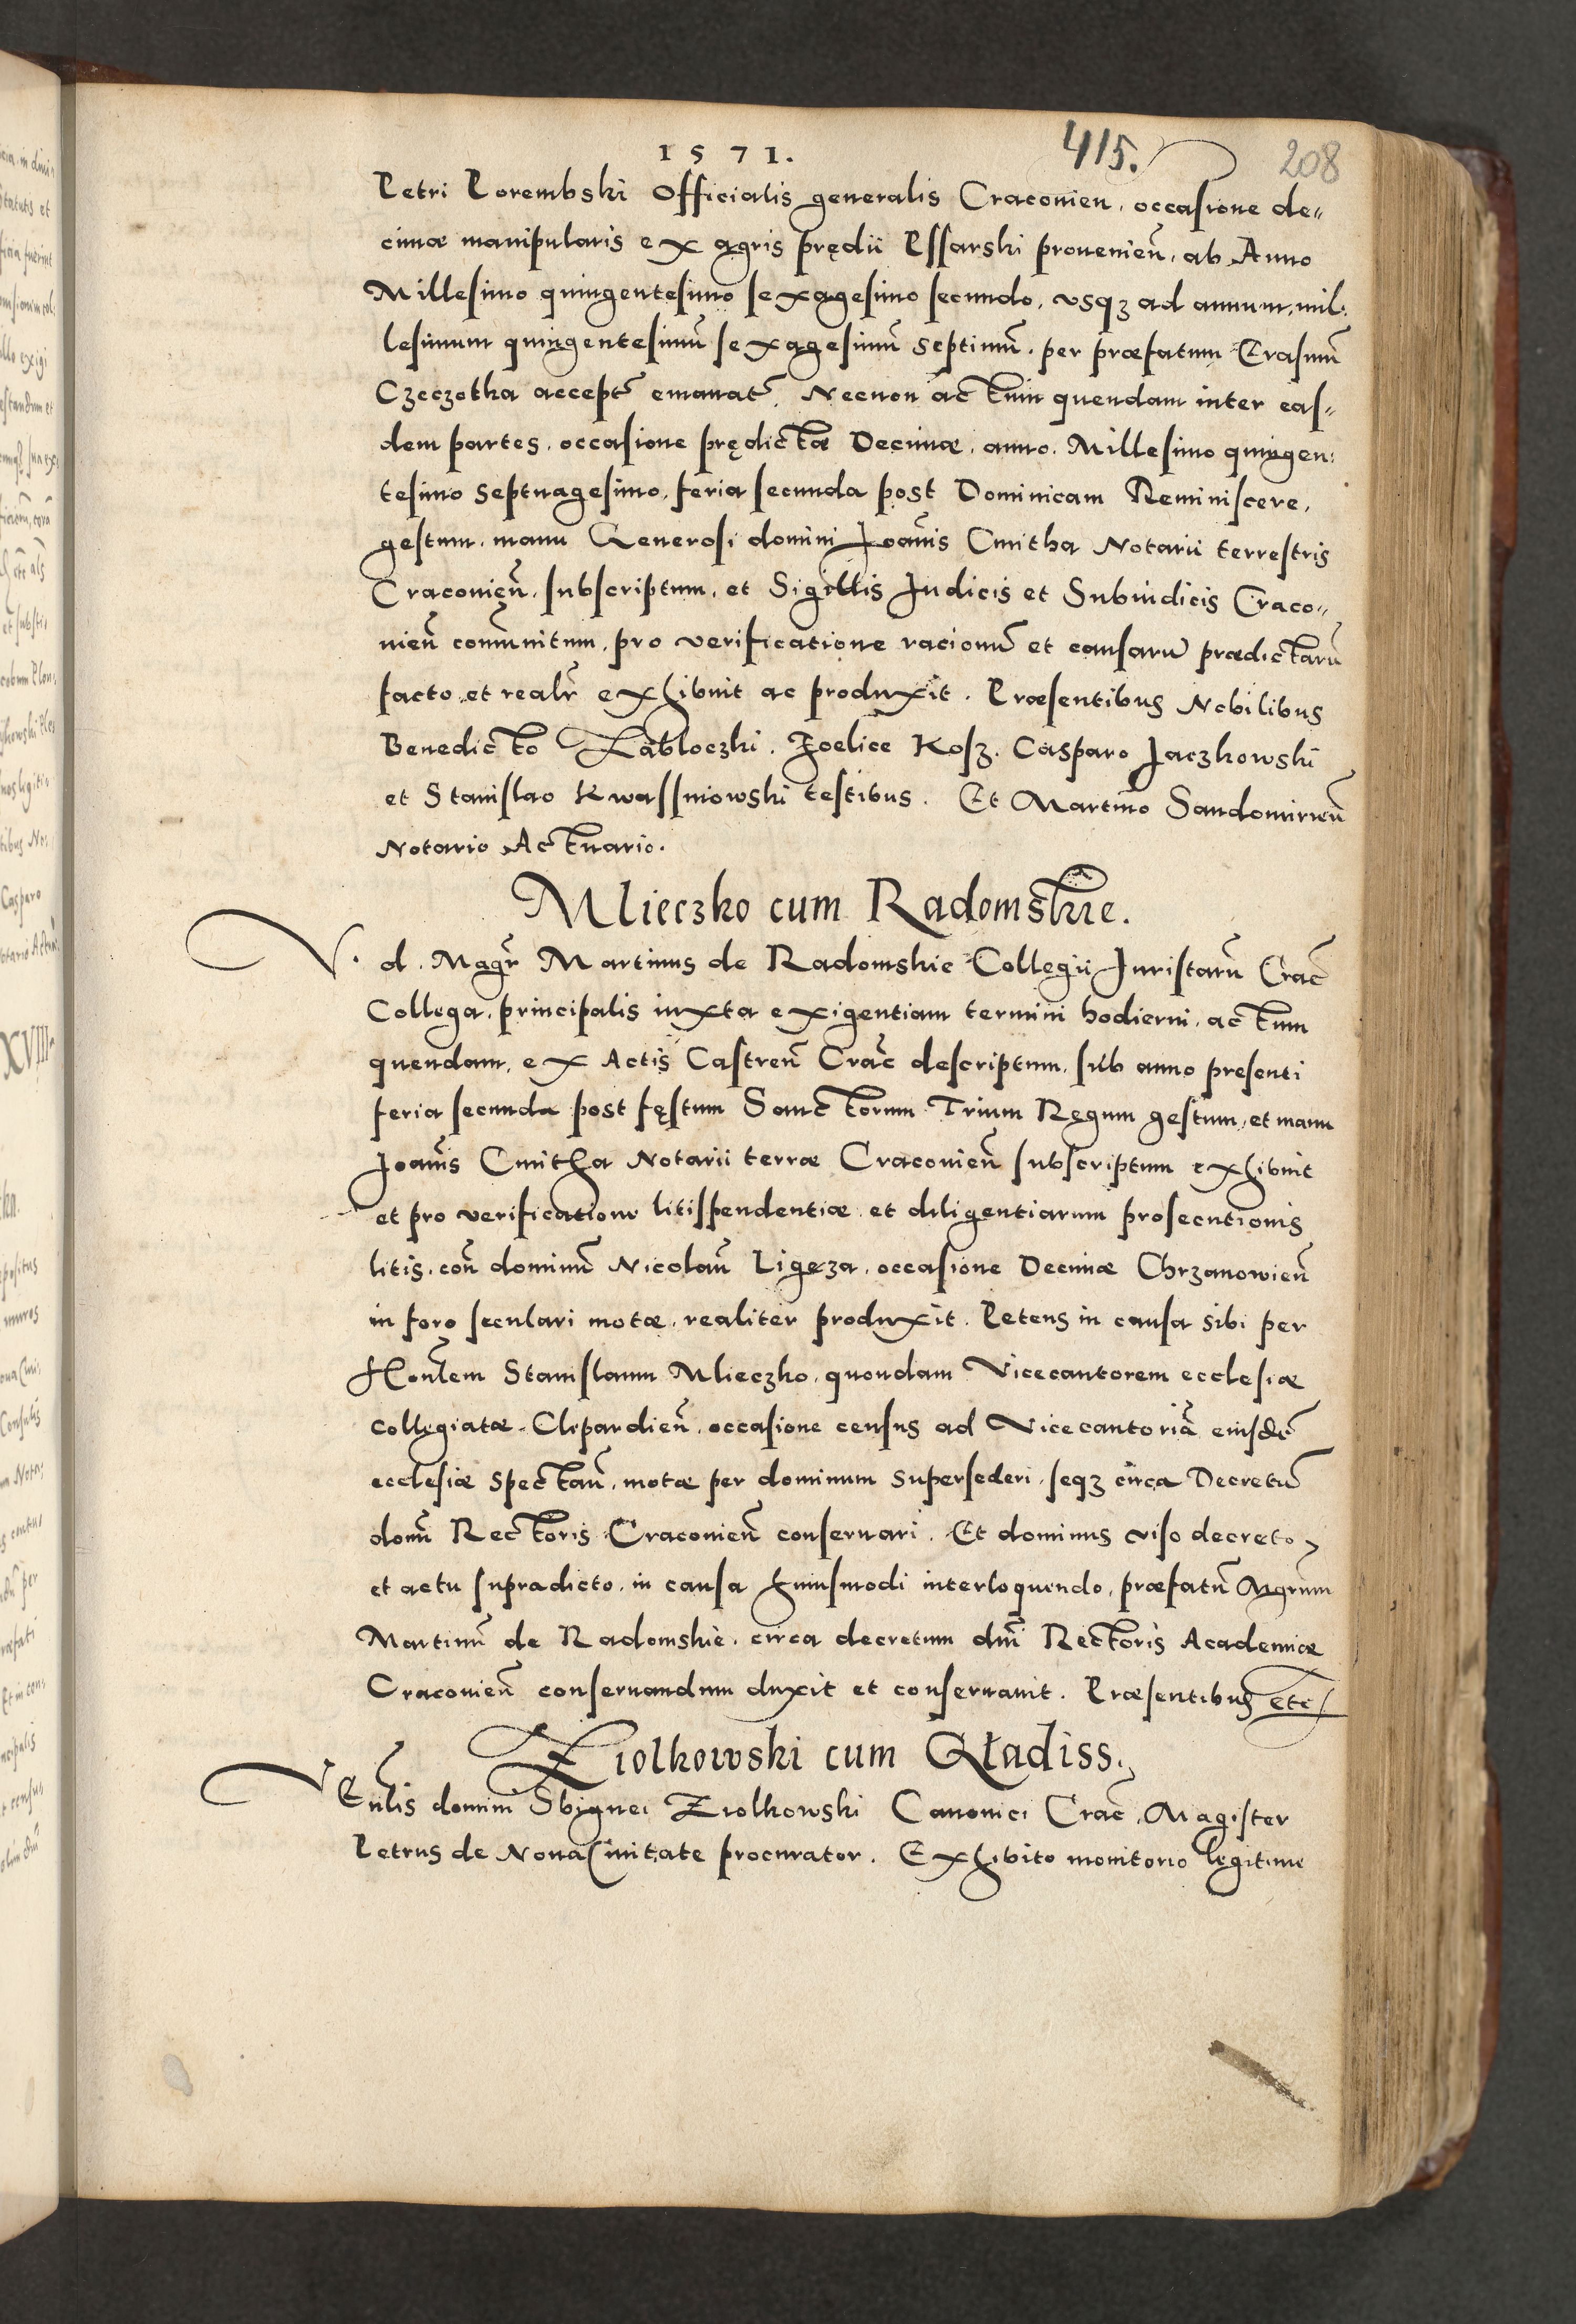 1571.
415.
208
Petri Porembski Officialis generalis Craconien. occasione de„
cimæ manipularis ex agris prędii Pssarski prouenien̄. ab Anno
Millesimo quingentesimo sexagesimo secundo, vsqꝫ ad annum, mil:
lesimum quingentesimū sexagesimū septimū. per præfatum Erasmū
Czeczotha accept̄ emanat̄. Necnon actum quendam inter eas„
dem partes, occasione prędictæ Decimæ, anno. Millesimo quingen:
tesimo septuagesimo, feria secunda post Dominicam Reminiscere,
gestum, manu Generosi domini Joānis Cmitha Notarii terrestris
Craconien̄. subscriptum, et Sigillis Judicis et Subiudicis Craco„
nien̄ com̄unitum, pro verificatione racionū et causarū prædictarū
facto et realr̄ exhibuit ac produxit. Præsentibus Nobilibus
Benedicto Zabloczki. Foelice Kosz. Casparo Jaczkowski
et Stanislao Kwassniowski testibus. Et Martino Sandomirien̄
Notario Actuario.
Mlieczko cum Radomskie.
V. d. Magr̄ Martinus de Radomskie Collegii Juristarū Crac̄
Collega, principalis iuxta exigentiam termini hodierni, actum
quendam, ex Actis Castren̄ Crac̄ descriptum, sub anno presenti
feria secunda post fęstum Sanctorum Trium Ręgum gestum, et manu
Joānis Cmitha Notarii terræ Craconien̄ subscriptum exhibuit
et pro verificatione litispendentiæ et diligentiarum prosecutionis
litis, con̄ dominū Nicolaū Ligęza, occasione Decimæ Chrzanowien̄
in foro seculari motæ, realiter produxit. Petens in causa sibi per
Hon̄lem Stanislaum Mlieczko, quondam Vicecantorem ecclesiæ
collegiatæ Clepardien̄, occasione census ad Vicecantoriā eiusdē
ecclesiæ spectan̄, motæ per dominum supersederi, seqꝫ circa Decretū
domī Rectoris Craconien̄ conseruari. Et dominus viso decreto,
et actu supradicto, in causa huiusmodi interloquendo, præfatū Mgrum
Martinū de Radomskie, circa decretum dn̄i Rectoris Academiæ
Craconien̄ conseruandum duxit et conseruauit. Præsentibus etc
Ziolkowski cum Gładiss.
Ven̄lis domini Sbignei Ziolkowski Canonici Crac̄, Magister
Petrus de Noua Ciuitate procurator. Exhibito monitorio legitime